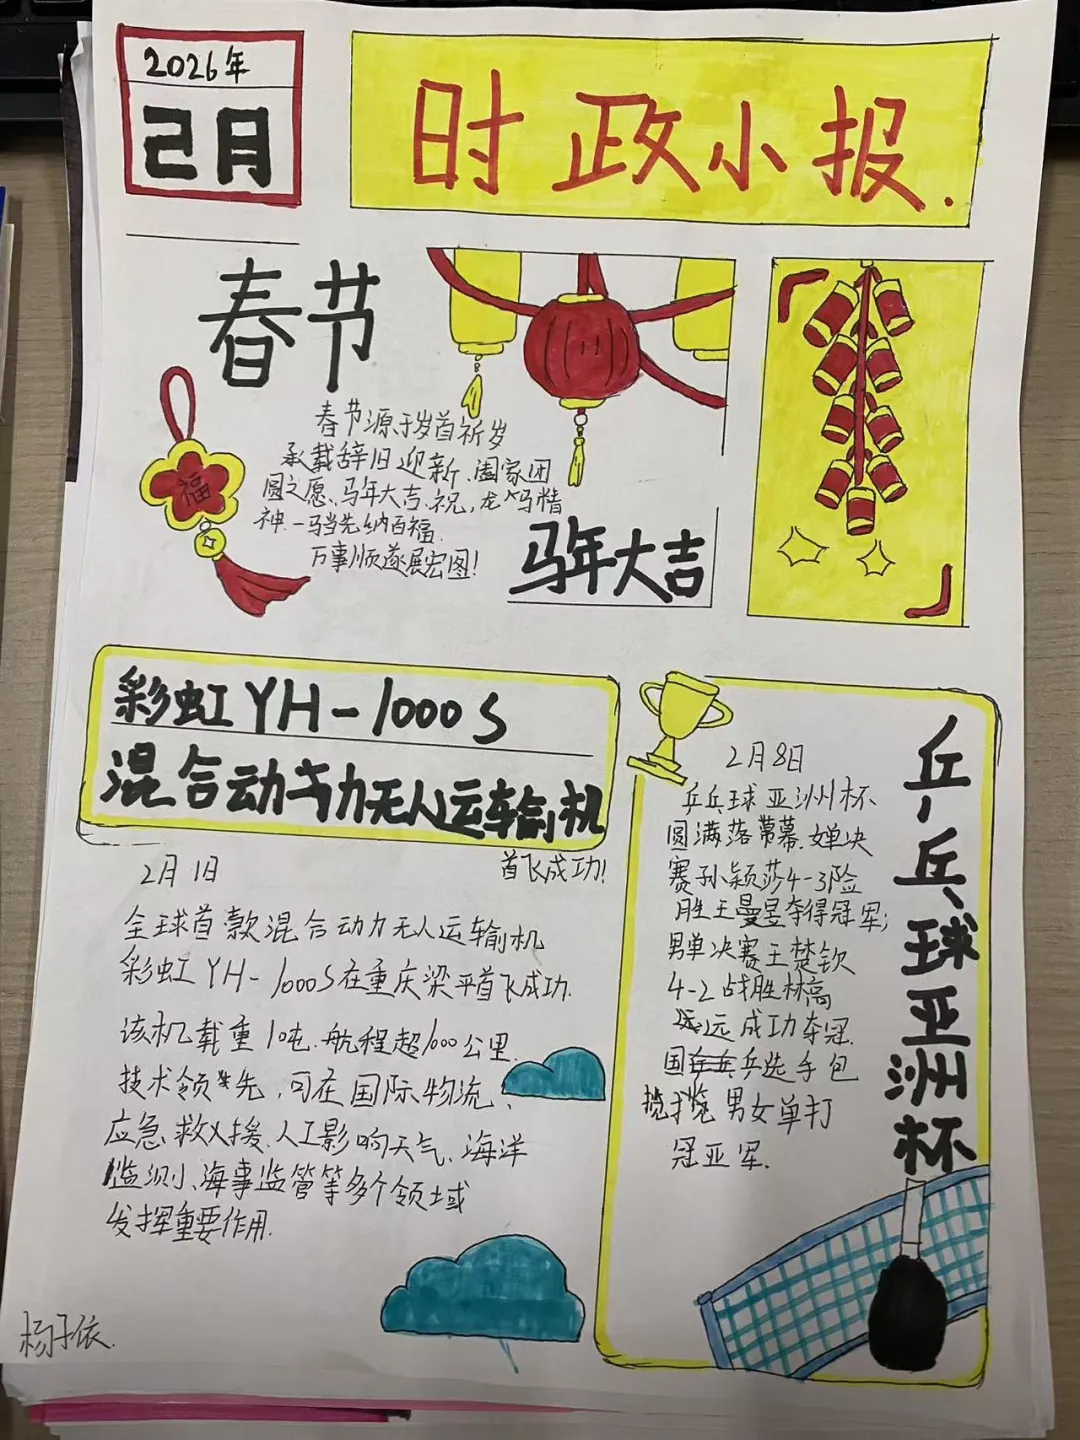 2026年
2月
时政小报.
春节
福
春节源于岁首祈岁
承载辞旧迎新、阖家团
圆之愿、马年大吉.祝,龙马精
神.一马当先纳百福.
万事顺遂展宏图!
马年大吉
彩虹YH-1000S
混合动力无人运输机
首飞成功!
2月1日
全球首款混合动力无人运输机
彩虹YH-1000S在重庆梁平首飞成功.
该机载重10吨.航程超1000公里.
技术领先,可在国际物流、
应急救援、人工影响天气、海洋
监测、海事监管等多个领域
发挥重要作用.
乒乓球亚洲杯
2月8日
乒乓球亚洲杯
圆满落幕.女单决
赛孙颖莎4-3险
胜王曼昱夺得冠军;
男单决赛王楚钦
4-2战胜林高
远成功夺冠.
国乒选手包
揽男女单打
冠亚军.
杨子依.